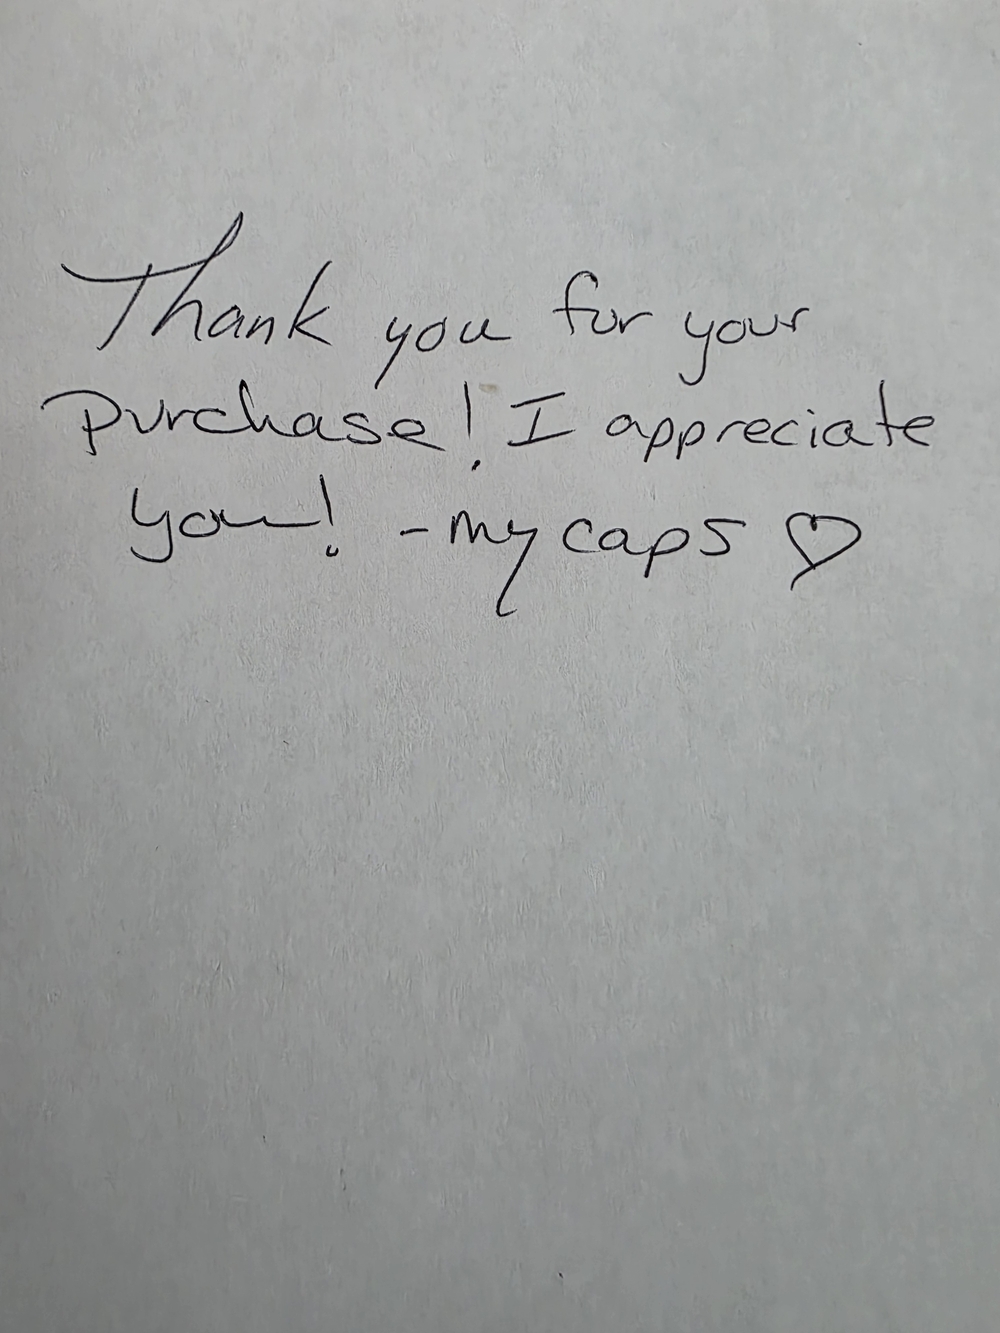 Thank you for your
purchase! I appreciate
you! - my caps ♡